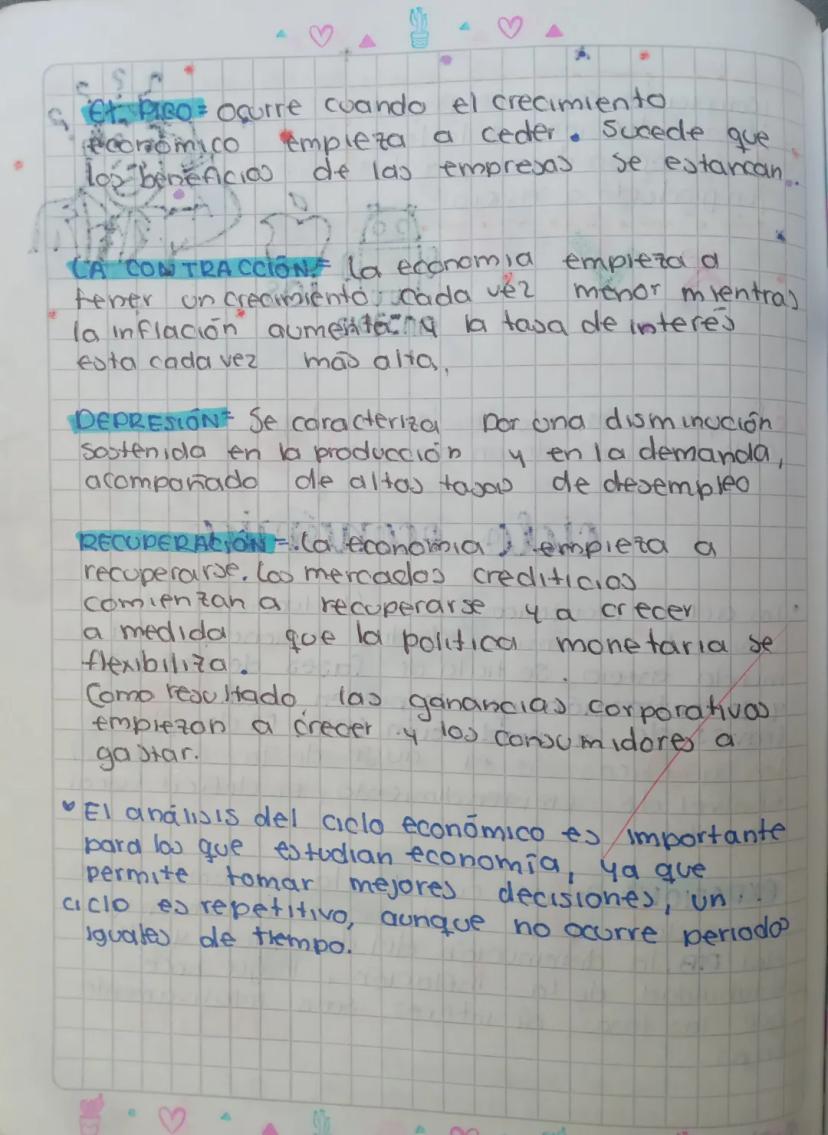 EL PICO = ocurre cuando el crecimiento
económico empieza a ceder. Sucede que
los beneficios de las empresas se estancan.
LA CONTRACCIÓN = la economia empieza a
tener un crecimiento cada vez menor mientras
la inflación aumenta y la tasa de interés
esta cada vez más alta.
DEPRESIÓN = Se caracteriza por una disminución
sostenida en la producción y en la demanda,
acompañado de altas tasas de desempleo
RECUPERACIÓN = La economia, empieza a
recuperarse. Los mercados crediticios
comienzan a recuperarse y a crecer
a medida que la politica monetaria se
flexibiliza.
Como resultado las ganancias corporativas
empiezan a crecer y los consumidores a
gastar.
♥ El análisis del ciclo económico es importante
para los que estudian economía, ya que
permite tomar mejores decisiones, un
ciclo es repetitivo, aunque no ocurre periodos
iguales de tiempo.